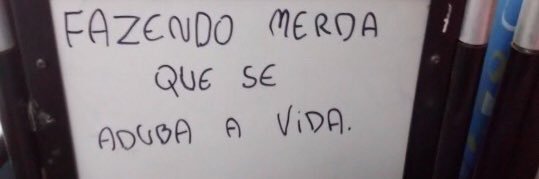 FAZENDO MERDA
QUE SE
ADUBA A ViDA.